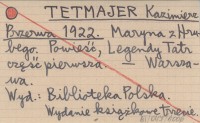 TETMAJER Kazimierz
Przerwa 1922. Maryna z Hru-
bego. Powieść, Legendy Tatr
część pierwsza — Warsza-
wa.
Wyd.: Biblioteka Polska.
Wydanie książkowe trzecie.